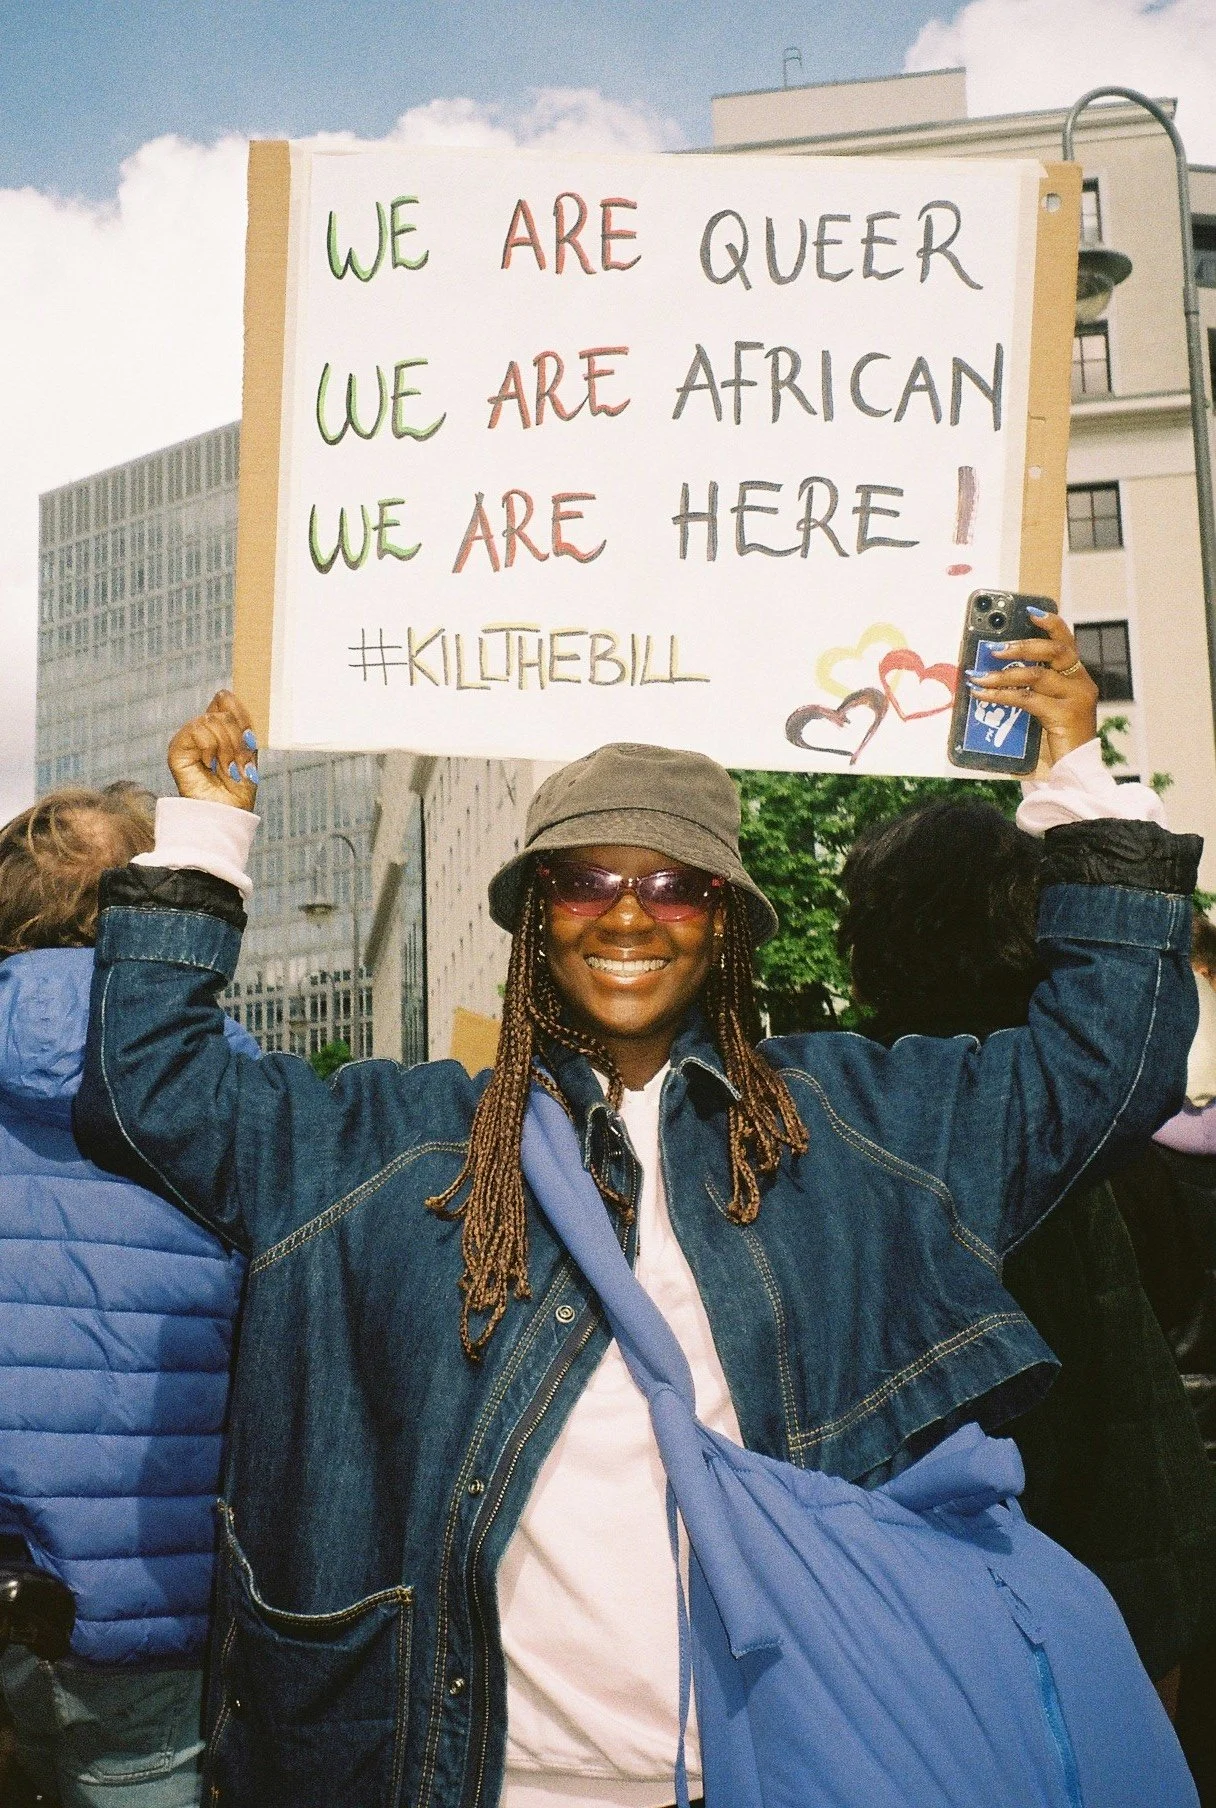 WE ARE QUEER
WE ARE AFRICAN
WE ARE HERE!
#KILLTHEBILL